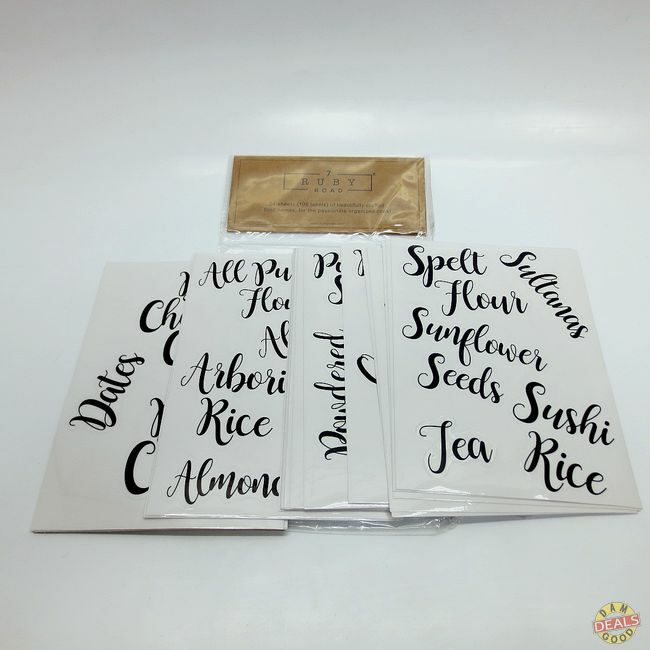 7
RUBY
ROAD
24 sheets (108 labels) of beautifully crafted
food names, for the passionate organized cook!
Dates
Ch
C
All Pu
Flou
Al
Arbori
Rice
Almond
Powdered
Spelt
Flour
Sultanas
Sunflower
Seeds
Sushi
Rice
Tea
DAM
GOOD
DEALS